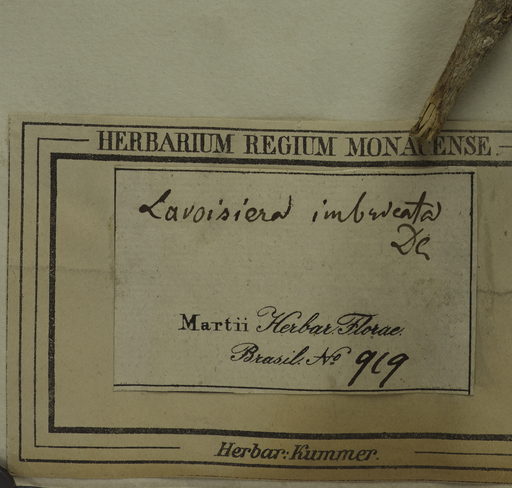 HERBARIUM REGIUM MONACENSE.
Lavoisiera imbricata
DC
Martii Herbar. Florae.
Brasil. No 919
Herbar: Kummer.